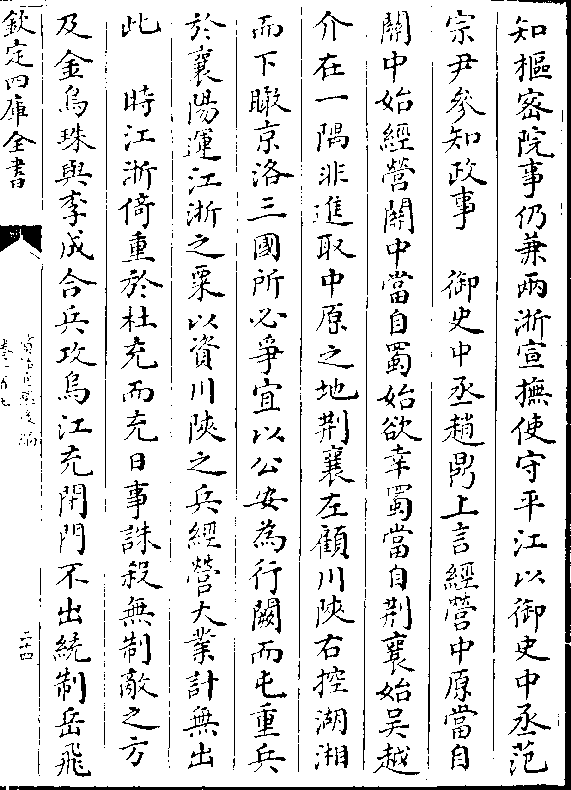 知樞密院事仍兼兩浙宣撫使守平江以御史中丞范
宗尹參知政事　御史中丞趙鼎上言經營中原當自
關中始經營關中當自蜀始欲幸蜀當自荆襄始吴越
介在一隅非進取中原之地荆襄左顧川陜右控湖湘
而下瞰京洛三國所必爭宜以公安為行闕而屯重兵
於襄陽運江浙之粟以資川陜之兵經營大業計無出
此　時江浙倚重於杜充而充日事誅殺無制敵之方
及金烏珠與李成合兵攻烏江充閉門不出統制岳飛
欽定四庫全書
二十四